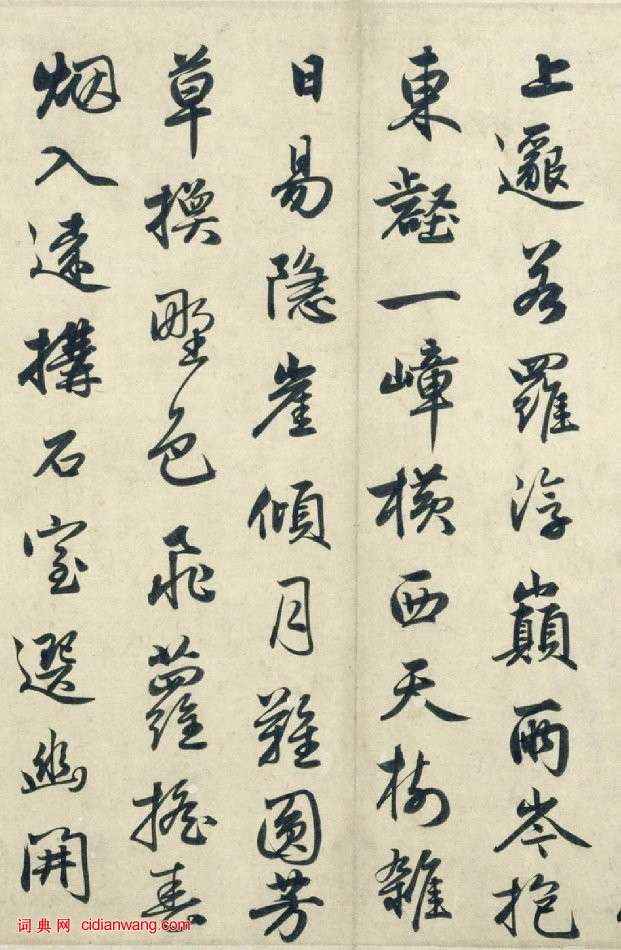 上邈若羅浮巔兩岑抱
東壑一嶂橫西天樹雜
日易隱崖傾月難圓芳
草換野色飛蘿搖春
烟入遠構石室選幽開
词典网 cidianwang.com